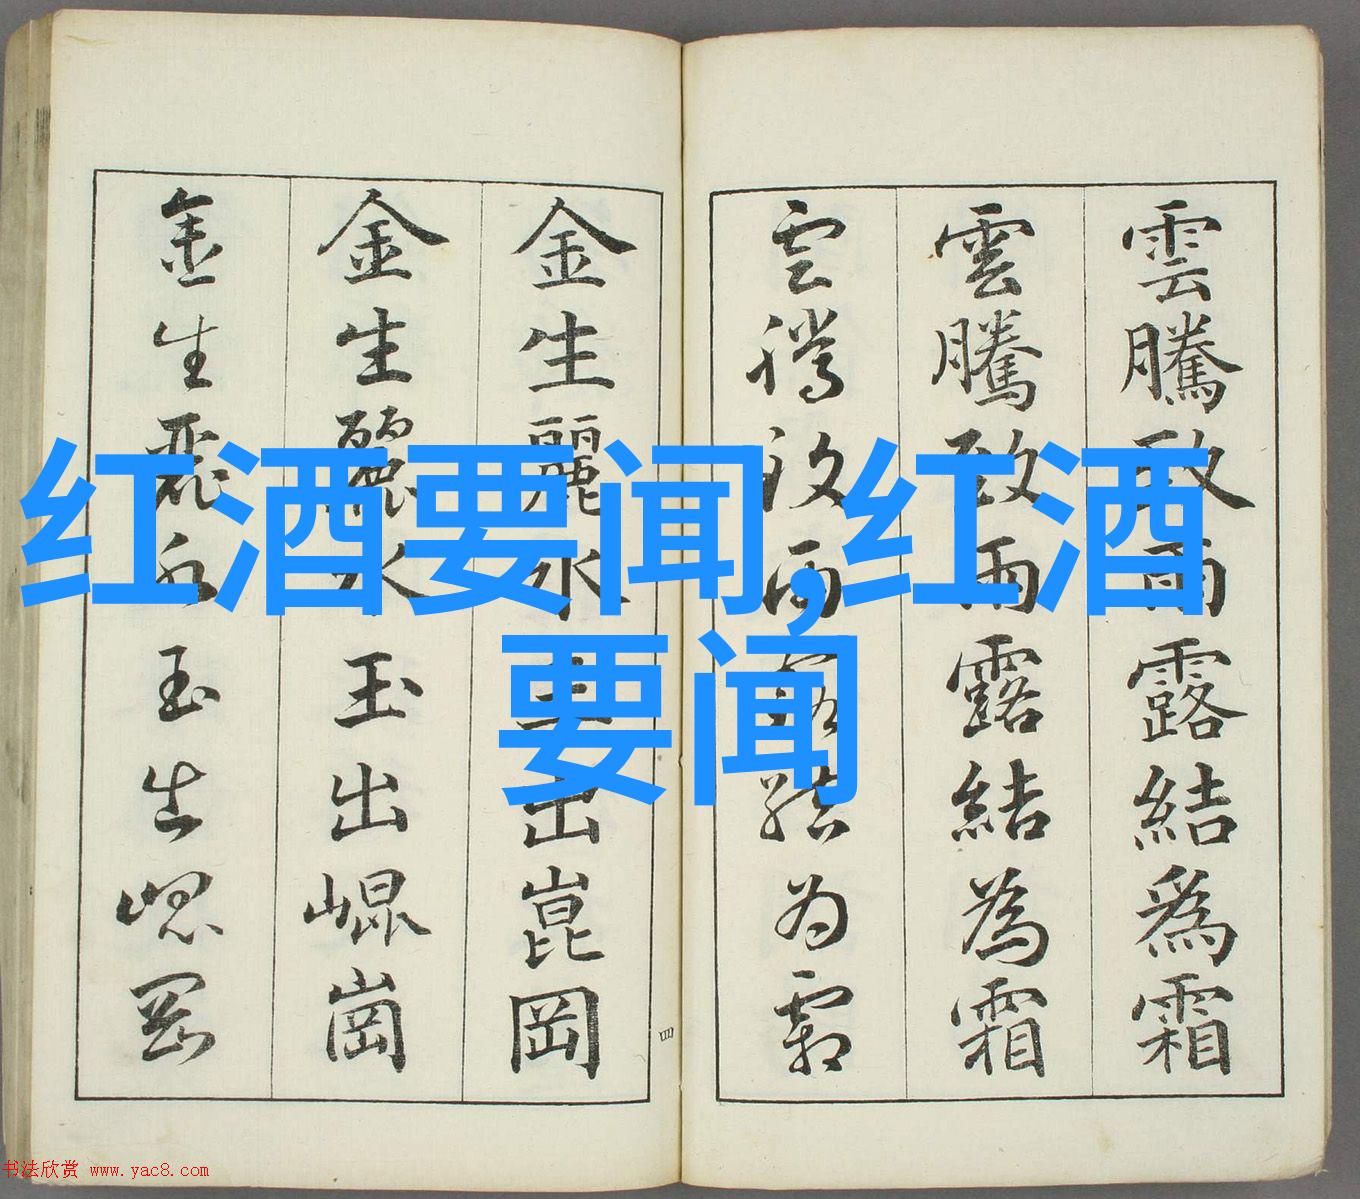 雲騰致雨露結為霜
雲騰致雨露結為霜
雲騰致雨露結为霜
金生麗水玉出崑岡
金生麗水玉出崐崗
金生麗水玉出崐岡
四
红酒要闻,红酒
要闻
书法欣赏 www.yac8.com